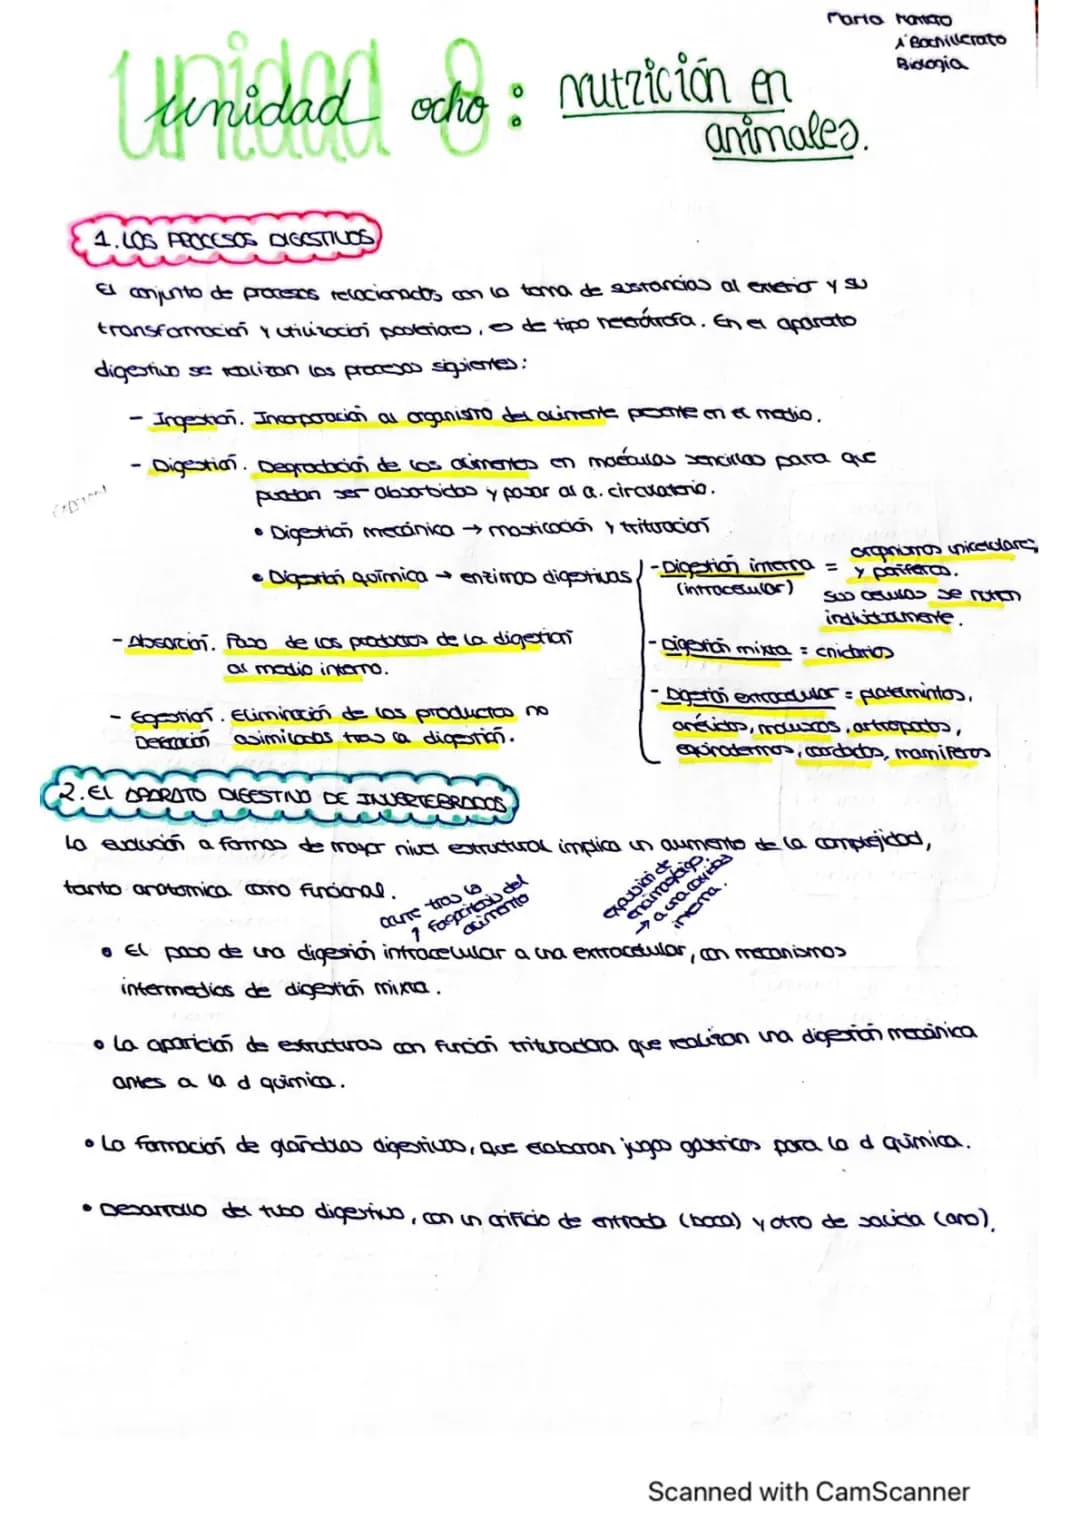 María
1º Bachillerato
Biología
Unidad 8
unidad ocho : nutrición en
animales.
1. LOS PROCESOS DIGESTIVOS
El conjunto de procesos relacionados con la toma de sustancias al exterior y su
transformación y utilización posteriores, es de tipo heterótrofa. En el aparato
digestivo se realizan los procesos siguientes:
- Ingestión. Incorporación al organismo del alimento presente en el medio.
- Digestión. Degradación de los alimentos en moléculas sencillas para que
puedan ser absorbidas y pasar al a. circulatorio.
• Digestión mecánica → masticación y trituración
• Digestión química → enzimas digestivas
- Digestión interna = organismos unicelulares
(intracelular) y poríferos.
Sus células se nutren
individualmente.
- Digestión mixta = cnidarios
- Digestión extracelular = platelmintos,
anélidos, moluscos, artrópodos,
equinodermos, cordados, mamíferos
- Absorción. Paso de los productos de la digestión
al medio interno.
- Egestión. Eliminación de los productos no
Defecación asimilados tras la digestión.
2. El APARATO DIGESTIVO DE INVERTEBRADOS
La evolución a formas de mayor nivel estructural implica un aumento de la complejidad,
tanto anatómica como funcional.
ocurre tras la
↑ fagocitosis del
alimento
expulsión de
enzimas digo.
→ a una cavidad
interna.
• El paso de una digestión intracelular a una extracelular, con mecanismos
intermedios de digestión mixta.
• La aparición de estructuras con función trituradora que realizan una digestión mecánica
antes a la d química.
• La formación de glándulas digestivas, que elaboran jugos gástricos para la d química.
• Desarrollo del tubo digestivo, con un orificio de entrada (boca) y otro de salida (ano).
Scanned with CamScanner